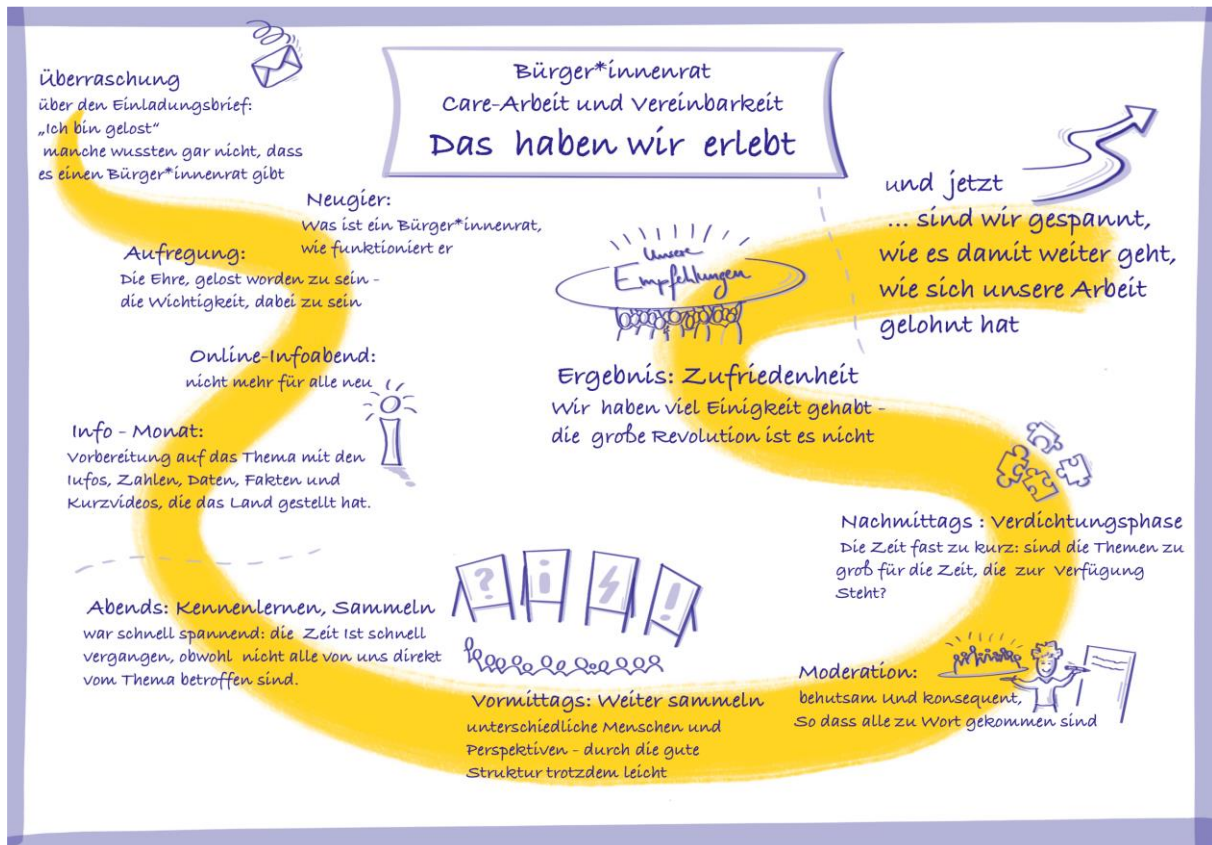 Bürger*innenrat
Care-Arbeit und Vereinbarkeit
Das haben wir erlebt
Überraschung
über den Einladungsbrief:
„Ich bin gelost“
manche wussten gar nicht, dass
es einen Bürger*innenrat gibt
Neugier:
Was ist ein Bürger*innenrat,
wie funktioniert er
Aufregung:
Die Ehre, gelost worden zu sein -
die Wichtigkeit, dabei zu sein
Online-Infoabend:
nicht mehr für alle neu
i
Info - Monat:
Vorbereitung auf das Thema mit den
Iufos, Zahlen, Daten, Fakten und
Kurzvideos, die das Land gestellt hat.
Abends: Kennenlernen, Sammeln
war schnell spannend: die Zeit Ist schnell
vergangen, obwohl nicht alle von uns direkt
vom Thema betroffen sind.
? i !
Vormittags: Weiter sammeln
unterschiedliche Menschen und
Perspektiven - durch die gute
Struktur trotzdem leicht
Moderation:
behutsam Und konsequent,
So dass alle zu Wort gekommen sind
Nachmittags : Verdichtungsphase
Die Zeit fast zu kurz: sind die Themen zu
groß für die Zeit, die zur Verfügung
Steht?
Unsere
Empfehlungen
Ergebnis: Zufriedenheit
Wir haben viel Einigkeit gehabt -
die große Revolution ist es nicht
und jetzt
... sind wir gespannt,
wie es damit weiter geht,
wie sich unsere Arbeit
gelohnt hat